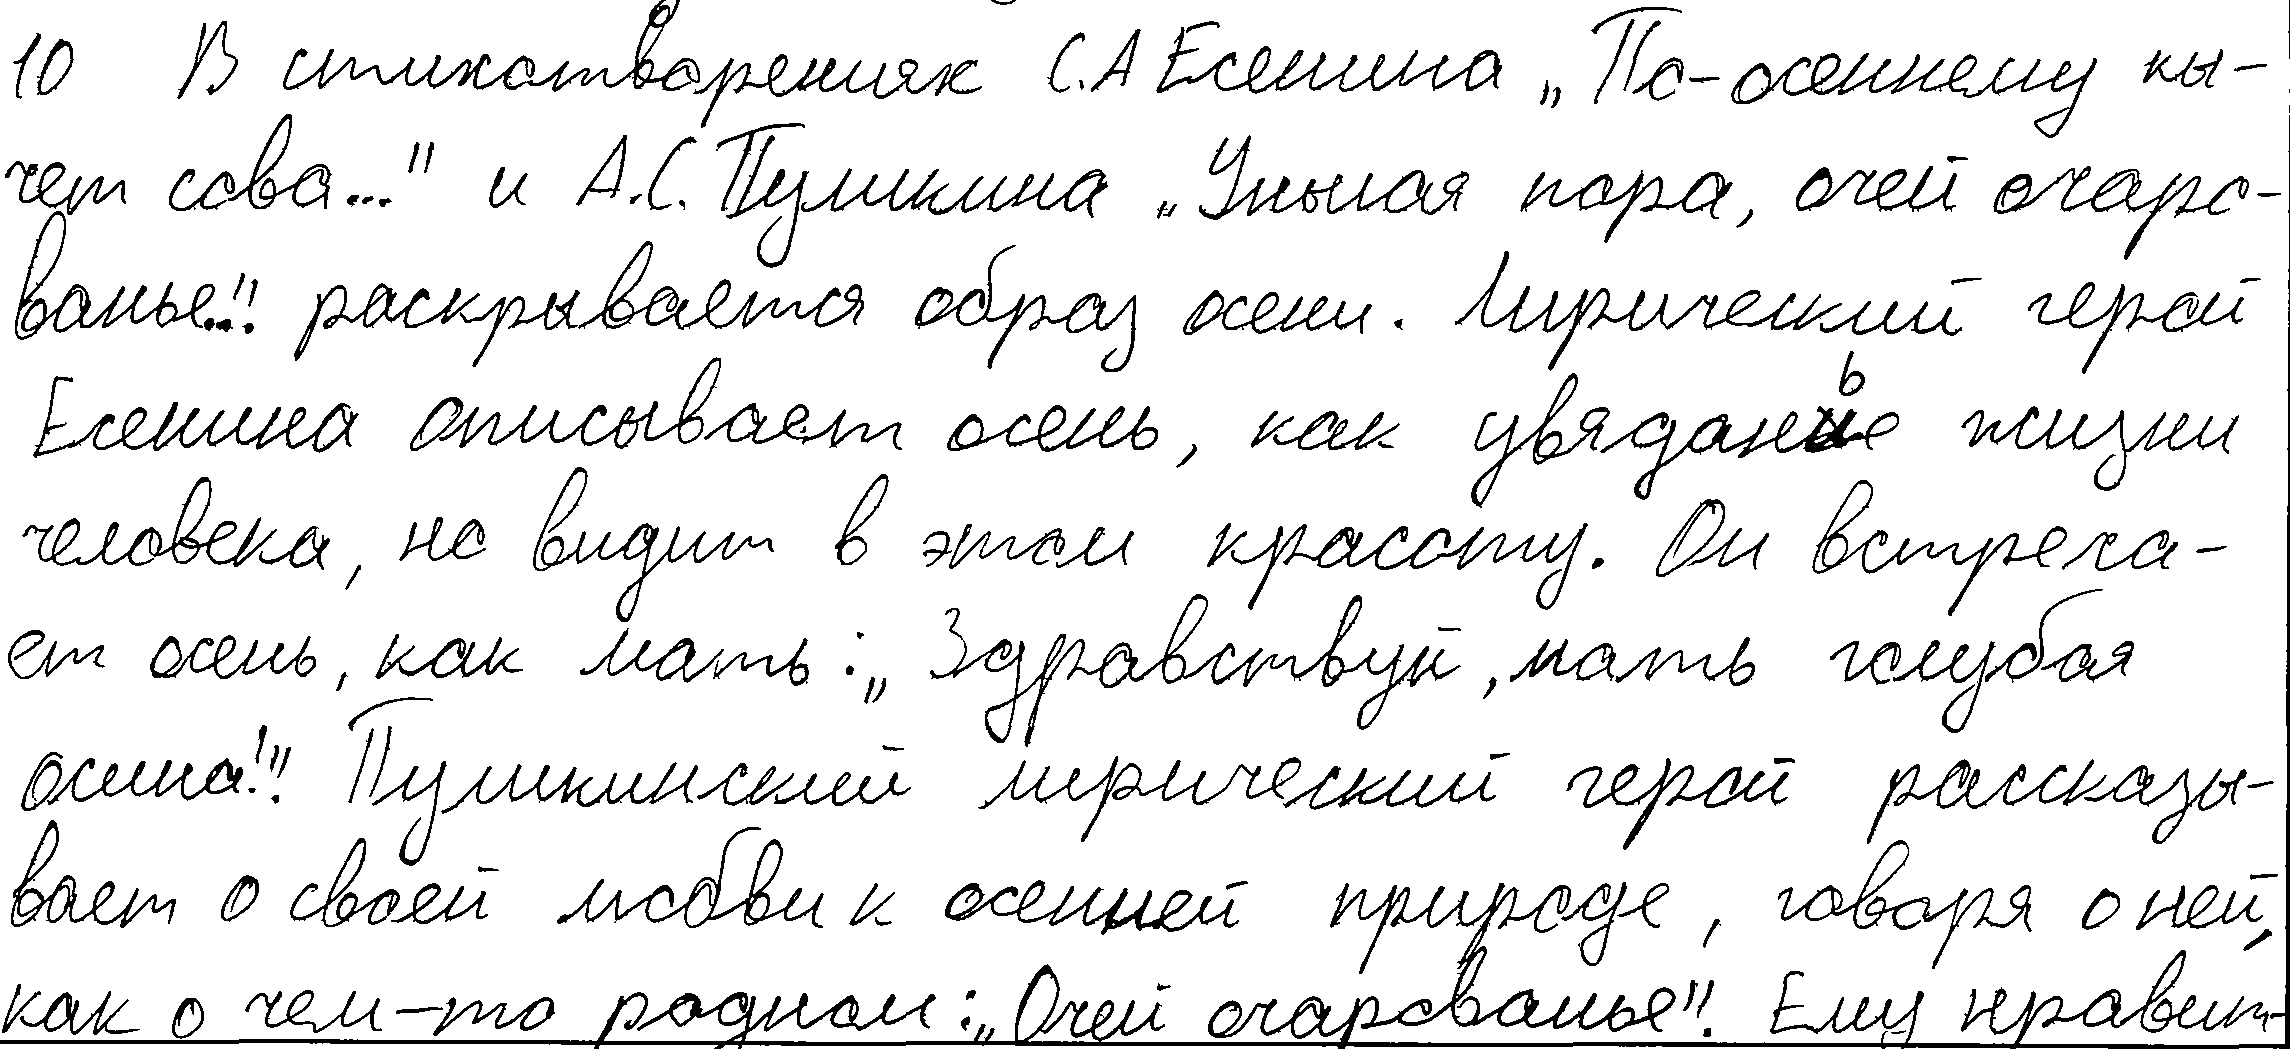 10 В стихотворениях С.А Есенина „По-осеннему кы-
чет сова..." и А.С. Пушкина „Унылая пора, очей очаро-
ванье..." раскрывается образ осени. Лирический герой
Есенина описывает осень, как увяданье жизни
человека, но видит в этом красоту. Он встреча-
ет осень, как мать: „Здравствуй, мать голубая
осина!". Пушкинский лирический герой рассказы-
вает о своей любви к осенней природе, говоря о ней,
как о чем-то родном: „Очей очарованье". Ему нравит-